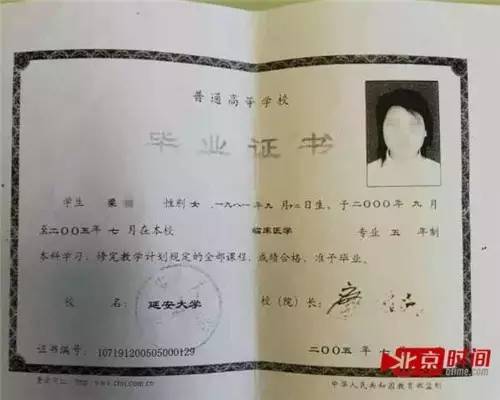 普通高等学校
毕业证书
学生 梁 性别 女, 一九八一年九月 二日生, 于二〇〇〇年 九月
至二〇〇五年 七月在本校 临床医学 专业 五 年制
本科学习, 修完教学计划规定的全部课程, 成绩合格, 准予毕业。
校 名: 延安大学 校(院)长:
证书编号: 107191200505000129 二〇〇五年 七
查询网址: http://www.chsi.com.cn 中华人民共和国教育部监制
北京时间
btime.com